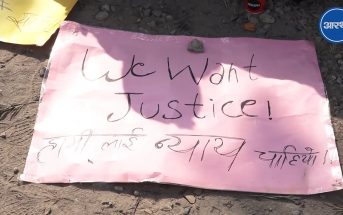 We Want
Justice!
हामी लाई न्याय चाहियो।